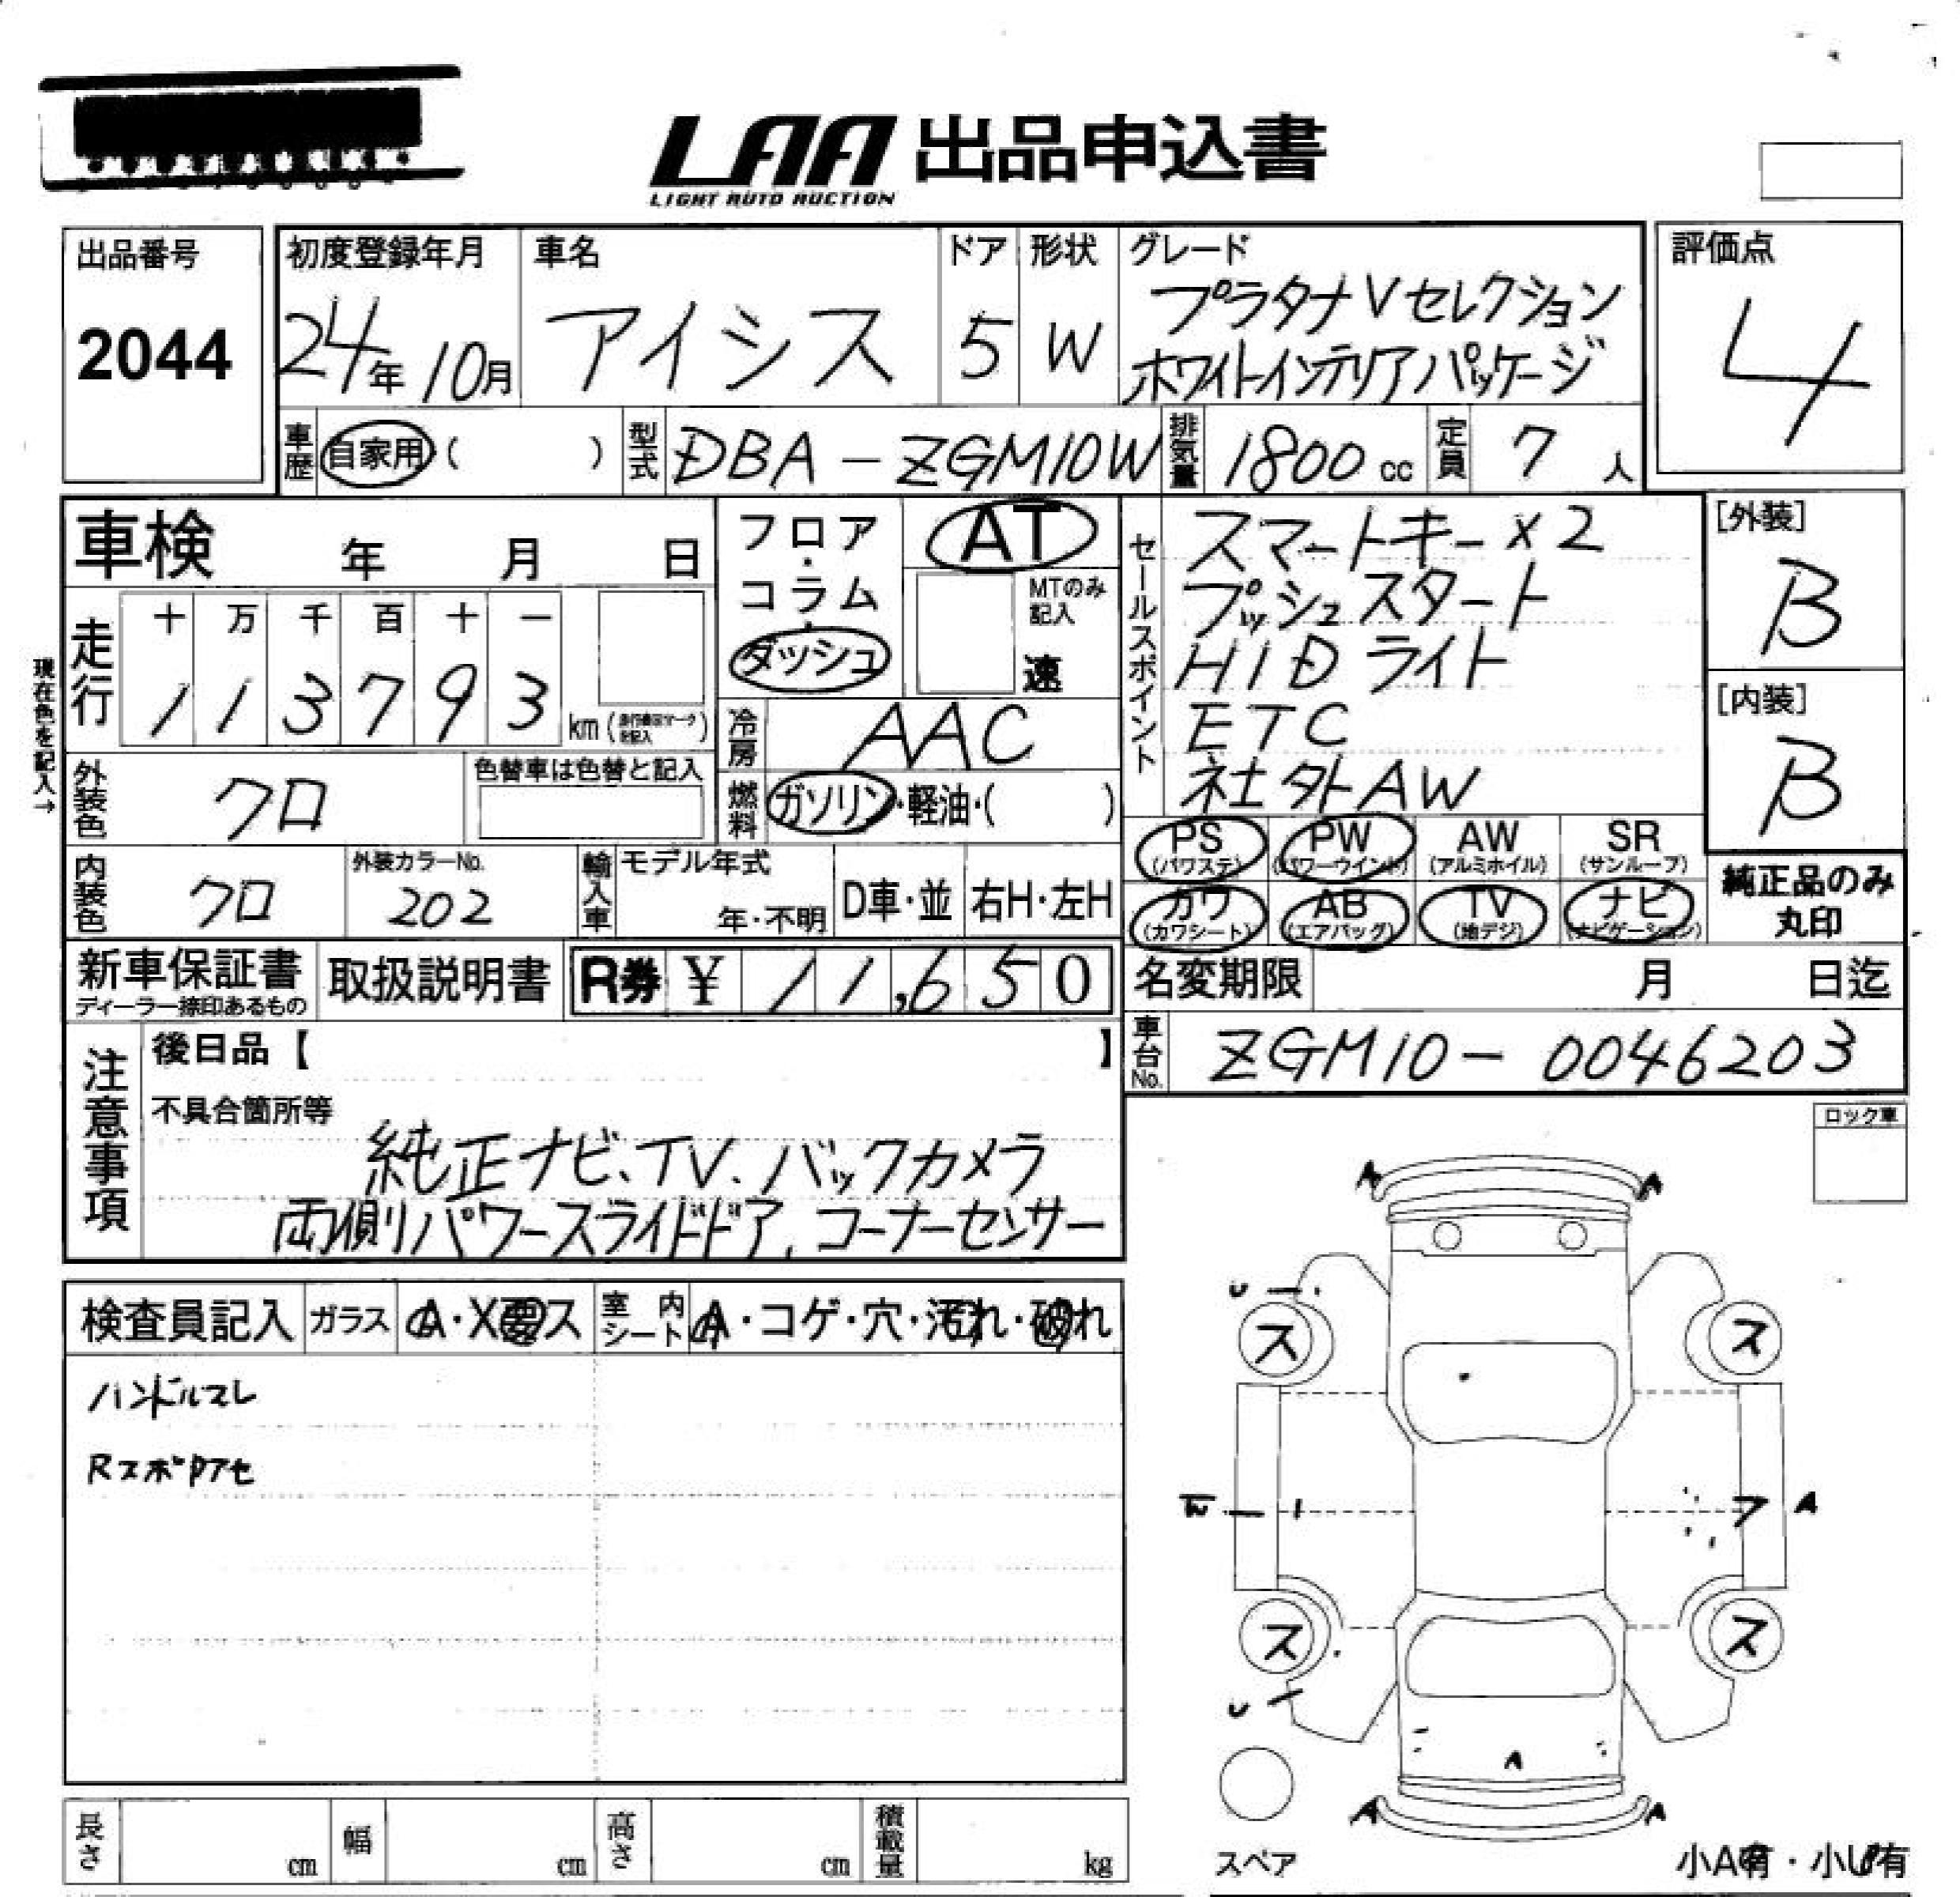 LAA 出品申込書
LIGHT AUTO AUCTION
出品番号
2044
初度登録年月
24年10月
車名
アイシス
ドア
5
形状
W
グレード
プラタナVセレクション
ホワイトインテリアパッケージ
評価点
4
車歴 自家用 ( )
型式 DBA-ZGM10W
排気量 1800 cc
定員 7 人
車検 年 月 日
フロア・
コラム・
ダッシュ
AT
MTのみ
記入
速
現在色を記入→
走行
十 万 千 百 十 一
1 1 3 7 9 3
km (走行表示マークを記入)
冷房 AAC
外装色 クロ
色替車は色替と記入
燃料 ガソリン・軽油・( )
セールスポイント
スマートキー×2
プッシュスタート
HIDライト
ETC
社外AW
[外装]
B
[内装]
B
PS (パワステ)
PW (パワーウインド)
AW (アルミホイル)
SR (サンルーフ)
カワ (カワシート)
AB (エアバッグ)
TV (地デジ)
ナビ (ナビゲーション)
純正品のみ
丸印
内装色 クロ
外装カラーNo.
202
輸入車
モデル年式
年・不明
D車・並
右H・左H
新車保証書
ディーラー捺印あるもの
取扱説明書
R券 ¥ 11,650
名変期限 月 日迄
車台No. ZGM10-0046203
注意事項
後日品【 】
不具合箇所等
純正ナビ、TV、バックカメラ
両側パワースライドドア、コーナーセンサー
ロック車
検査員記入
ガラス A・X要ス
室内シート A・コゲ・穴・汚れ・破れ
ハンドルスレ
RスポPアセ
A A
U
ス ス
A
ス ス
U
A
A A
スペア
小A有・小U有
長さ cm
幅 cm
高さ cm
積載量 kg